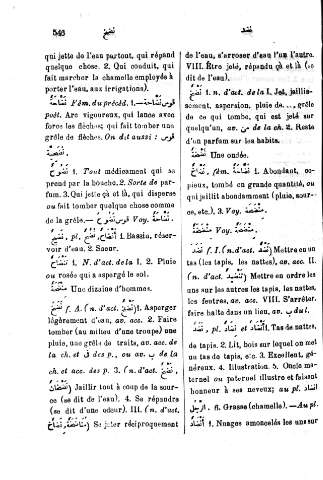 546
نضخ
نضد
qui jette de l'eau partout, qui répand
quelque chose. 2. Qui conduit, qui
fait marcher la chamelle employée à
porter l'eau, aux irrigations).
نضّاحة Fém. du précéd. 1. — قوس
poét. Arc vigoureux, qui lance avec
force les flèches; qui fait tomber une
grêle de flèches. On dit aussi : قوس
نضوح 1. Tout médicament qui se
prend par la bouche. 2. Sorte de par-
fum. 3. Qui jette çà et là, qui disperse
ou fait tomber quelque chose comme
de la grêle. — قوس نضوح Voy. نضّاحة.
نضيح, pl. 1. Bassin, réser-
voir d'eau. 2. Sueur.
1. N. d'act. de la I. 2. Pluie
ou rosée qui a aspergé le sol.
Une dizaine d'hommes.
نضخ f. A. (n. d'act. نضخ) 1. Asperger
légèrement d'eau, av. acc. 2. Faire
tomber (au milieu d'une troupe) une
pluie, une grêle de traits, av. acc. de
la ch. et في des p., ou av. ب de la
ch. et acc. des p. 3. (n. d'act. نضخ,
نضخان) Jaillir tout à coup de la sour-
ce (se dit de l'eau). 4. Se répandre
(se dit d'une odeur). III. (n. d'act.
نضاخ, مناضخة) Se jeter réciproquement
de l'eau, s'arroser d'eau l'un l'autre.
VIII. Être jeté, répandu çà et là (se
dit de l'eau).
نضخ 1. n. d'act. de la I. Jet, jaillis-
sement, aspersion, pluie de..., grêle
de ce qui tombe, qui est jeté sur
quelqu'un, av. من de la ch. 2. Reste
d'un parfum sur les habits.
نضخة Une ondée.
نضّاخ, fém. نضّاخة 1. Abondant, co-
pieux, tombé en grande quantité, ou
qui jaillit abondamment (pluie, sour-
ce, etc.). 3. Voy. منضخة.
منضخة Voy. منضخة.
نضد f. I. (n. d'act. نضد) Mettre en un
tas (les tapis, les nattes), av. acc. II.
(n. d'act. تنضيد) Mettre en ordre les
uns sur les autres les tapis, les nattes,
les lentres, av. acc. VIII. S'arrêter,
faire halte dans un lieu, av. ب du l.
نضد, pl. أنضاد 1. Tas de nattes,
de tapis. 2. Lit, bois sur lequel on met
un tas de tapis, etc. 3. Excellent, gé-
néreux. 4. Illustration. 5. Oncle ma-
ternel ou paternel illustre et faisant
honneur à ses neveux; au pl. أنضاد
الرجل. 6. Grasse (chamelle). — Au pl.
أنضاد 1. Nuages amoncelés les uns sur